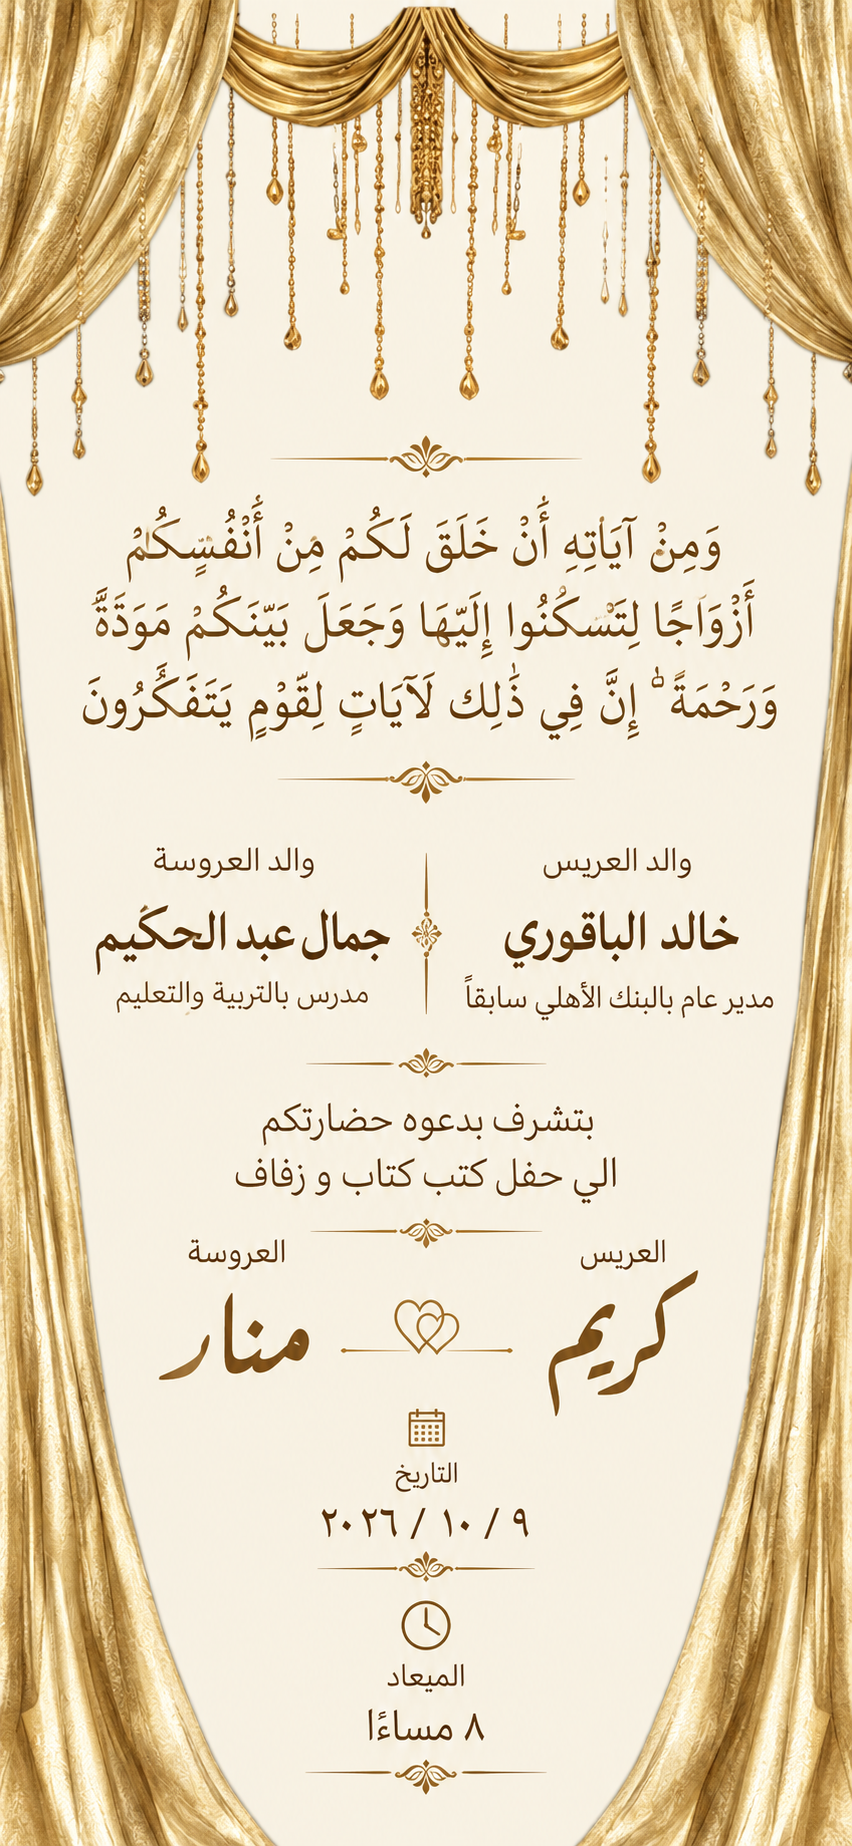 وَمِنْ آيَاتِهِ أَنْ خَلَقَ لَكُمْ مِنْ أَنْفُسِكُمْ
أَزْوَاجًا لِتَسْكُنُوا إِلَيْهَا وَجَعَلَ بَيْنَكُمْ مَوَدَّةً
وَرَحْمَةً ۚ إِنَّ فِي ذَٰلِك لَآيَاتٍ لِقَوْمٍ يَتَفَكَّرُونَ
والد العريس
خالد الباقوري
مدير عام بالبنك الأهلي سابقاً
والد العروسة
جمال عبد الحكيم
مدرس بالتربية والتعليم
بتشرف بدعوه حضارتكم
الي حفل كتب كتاب و زفاف
العريس
كريم
العروسة
منار
التاريخ
٩ / ١٠ / ٢٠٢٦
الميعاد
٨ مساءًا